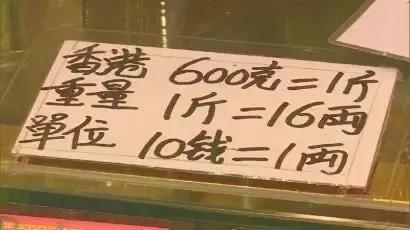 香港 600克=1斤
重量 1斤=16両
單位 10钱=1両